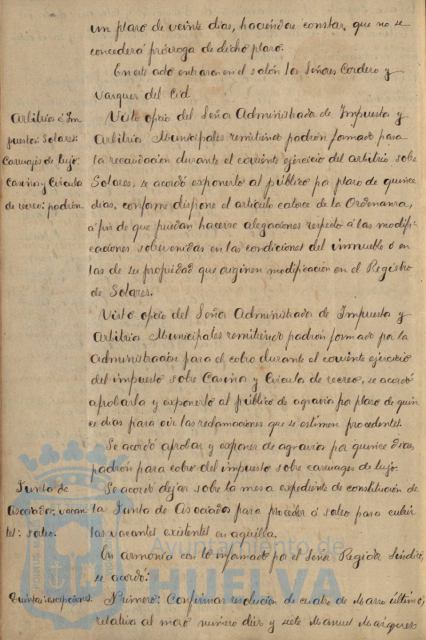 un plazo de veinte días, haciéndose constar, que no se
concederá prórroga de dicho plazo.
En este acto entraron en el salón los Señores Cordero y
Vazquez del Cid.
Arbitrios é Im
puestos: Solares:
Carruajes de lujo:
Casinos y Circulos
de recreo: padrón.
Visto oficio del Señor Administrador de Impuestos y
Arbitrios Municipales remitiendo padrón formado para
la recaudación durante el corriente ejercicio del arbitrio sobre
Solares, se acordó exponerlo al público por plazo de quince
días, conforme dispone el artículo catorce de la Ordenanza,
á fin de que puedan hacerse alegaciones respecto á las modifi-
caciones sobrevenidas en las condiciones del inmueble ó en
las de su propiedad que originen modificación en el Registro
de Solares.
Visto oficio del Señor Administrador de Impuestos y
Arbitrios Municipales remitiendo padrón formado por la
Administración para el cobro durante el corriente ejercicio
del impuesto sobre Casinos y Circulos de recreo, se acordó
aprobarlo y exponerlo al público de agravios por plazo de quin
ce días para oir las reclamaciones que se estimen procedentes.
Se acordó aprobar y exponer de agravios por quince días,
padrón para cobro del impuesto sobre carruages de lujo.
Junta de
Asociados: vacan
tes: sorteo.
Se acordó dejar sobre la mesa expediente de constitución de
la Junta de Asociados para proceder á sorteo para cubrir
las vacantes existentes en aquella.
En armonía con lo informado por el Señor Regidor Síndico,
se acordó:
Quintas: excepciones.
Primero: Confirmar resolución de cuatro de Marzo último,
relativa al mozo número diez y siete Manuel Marquez
Ayuntamiento de
HUELVA